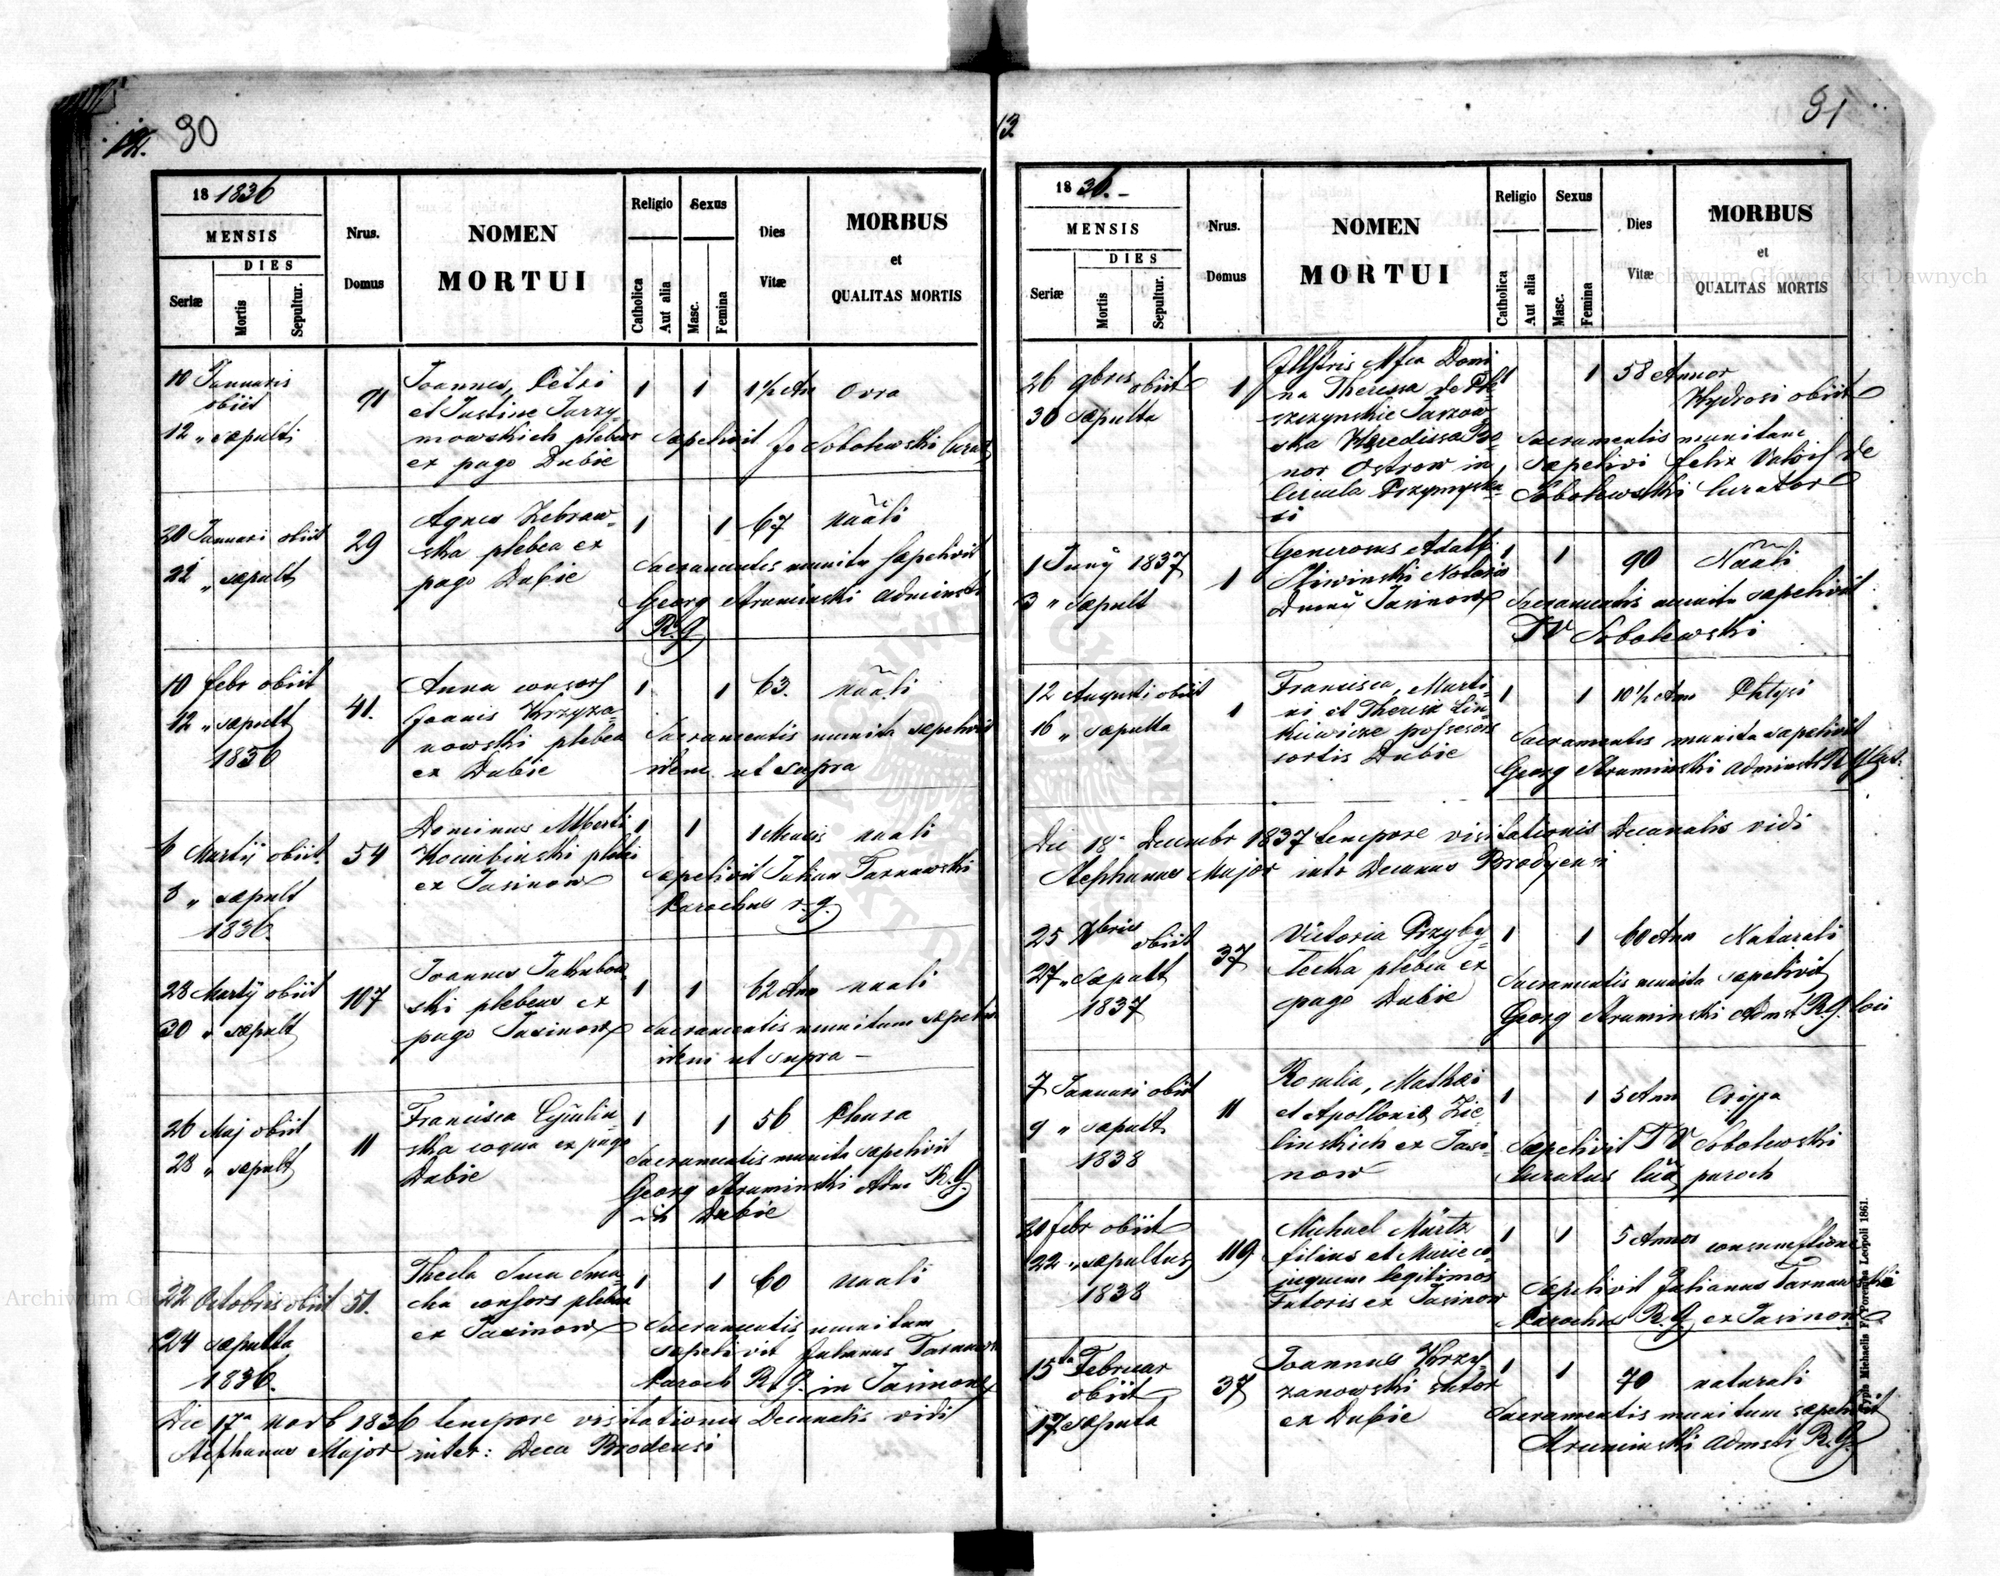 12. 30
18 1836
MENSIS
DIES
Seriæ
Mortis
Sepultur.
Nrus.
Domus
NOMEN
MORTUI
Religio
Catholica
Aut alia
Sexus
Masc.
Femina
Dies
Vitæ
MORBUS
et
QUALITAS MORTIS
10 Januaris
obiit
12 „ sepulti
91
Joannes, Petri
et Justine Jarzy
mowskich plebeor
ex pago Dubie
1 1 1½ An
sepelivit Sobolewski Curat
20 Januari obiit
22 „ sepult
29
Agnes Zebraw-
ska plebea ex
pago Dubie
1 1 67 nãali
Sacramentis munita sepelivit
Georg Struminski administ
R.G
10 febr obiit
12 „ sepult
1836
41.
Anna consors
Joanis Krzyza-
nowski plebea
ex Dubie
1 1 63. nãali
Sacramentis munita sepelivit
idem ut supra
6 Martij obiit
8 „ sepult
1836.
54
Dominus Alberti
plebei
ex Jasinow
1 1 1 Mensis naali
sepelivit Julian Tarnawski
Parochus r.g.
28 Martij obiit
30 „ sepult
107
Joannes Jakubow
ski plebeus ex
pago Jasinow
1 1 62 Ann naali
Sacramentis munitum
idem ut supra —
26 Maj obiit
28 „ sepult
11
Francisca
ska coqua ex pago
Dubie
1 1 56
Sacramentis munita sepelivit
Georg Struminski Adm R.G.
in Dubie
22 Octobris obiit
24 sepulta
1836.
51.
Thecla
cha consors plebea
ex Jasinow
1 1 60 naali
Sacramentis munitam
sepelivit Julianus Tarnaws
Paroch R.G. in Jasinow
Die 17a novb 1836 tempore visitationis Decanalis vidi
Stephanus Major inter: Deca Brodensi
13
31
18 36.-
MENSIS
DIES
Seriæ
Mortis
Sepultur.
Nrus.
Domus
NOMEN
MORTUI
Religio
Catholica
Aut alia
Sexus
Masc.
Femina
Dies
Vitæ
MORBUS
et
QUALITAS MORTIS
26 9bris obiit
30 sepulta
1
Illstris Mfca Domi
na Theressa de
Jarzow
ska
nor Ostrow in
Circulo Przymysko-
si
1 1 58 Annor
Hydrosi obiit
Sacramentis munitam
sepelivi felix Valois de
Sobolewski Curator
1 Junij 1837
3 „ sepult
1
Generosus Adalb
Sliwinski
Jasinow
1 1 90 Nãali
Sacramentis munitu sepelivit
FV Sobolewski
12 Augusti obiit
16 „ sepulta
1
Francisca, Marti-
ni et Theresie Lin-
kiewicze possesors
sortis Dubie
1 1 10½ Ann Phtysi
Sacramentis munita sepelivit
Georg Struminski administ
Die 18a Decembr 1837 tempore visitationis Decanalis vidi
Stephanus Major inte Decanus Brodyensi
25 Xbris obiit
27 „ sepult
1837
37
Victoria Przyby-
tecka plebea ex
pago Dubie
1 1 60 Ann Naturali
Sacramentis munita sepelivit
Georg Struminski Admst R.G. loci
7 Januari obiit
9 „ sepult
1838
11
Rosalia, Mathæi
et Apollonie Zie
linskich ex Jasi-
now
1 1 5 Ann
Sepelivit FV Sobolewski
Curatus paroch
20 febr obiit
22 „ sepultus
1838
119
Michael Märtz
filius et Marie co
jugum legitimos
ex Jasinow
1 1 5 Annos consumptione
Sepelivit Julianus Tarnawski
Parochus R.G ex Jasinow
15ta Februar
obiit
17 sepulta
37
Joannes Krzy-
zanowski sutor
ex Dubie
1 1 70 naturali
Sacramentis munitum sepelivit
Struminski admstr R.G.
Typis Michaelis F. Poremba Leopoli 1861.
Archiwum Główne Akt Dawnych